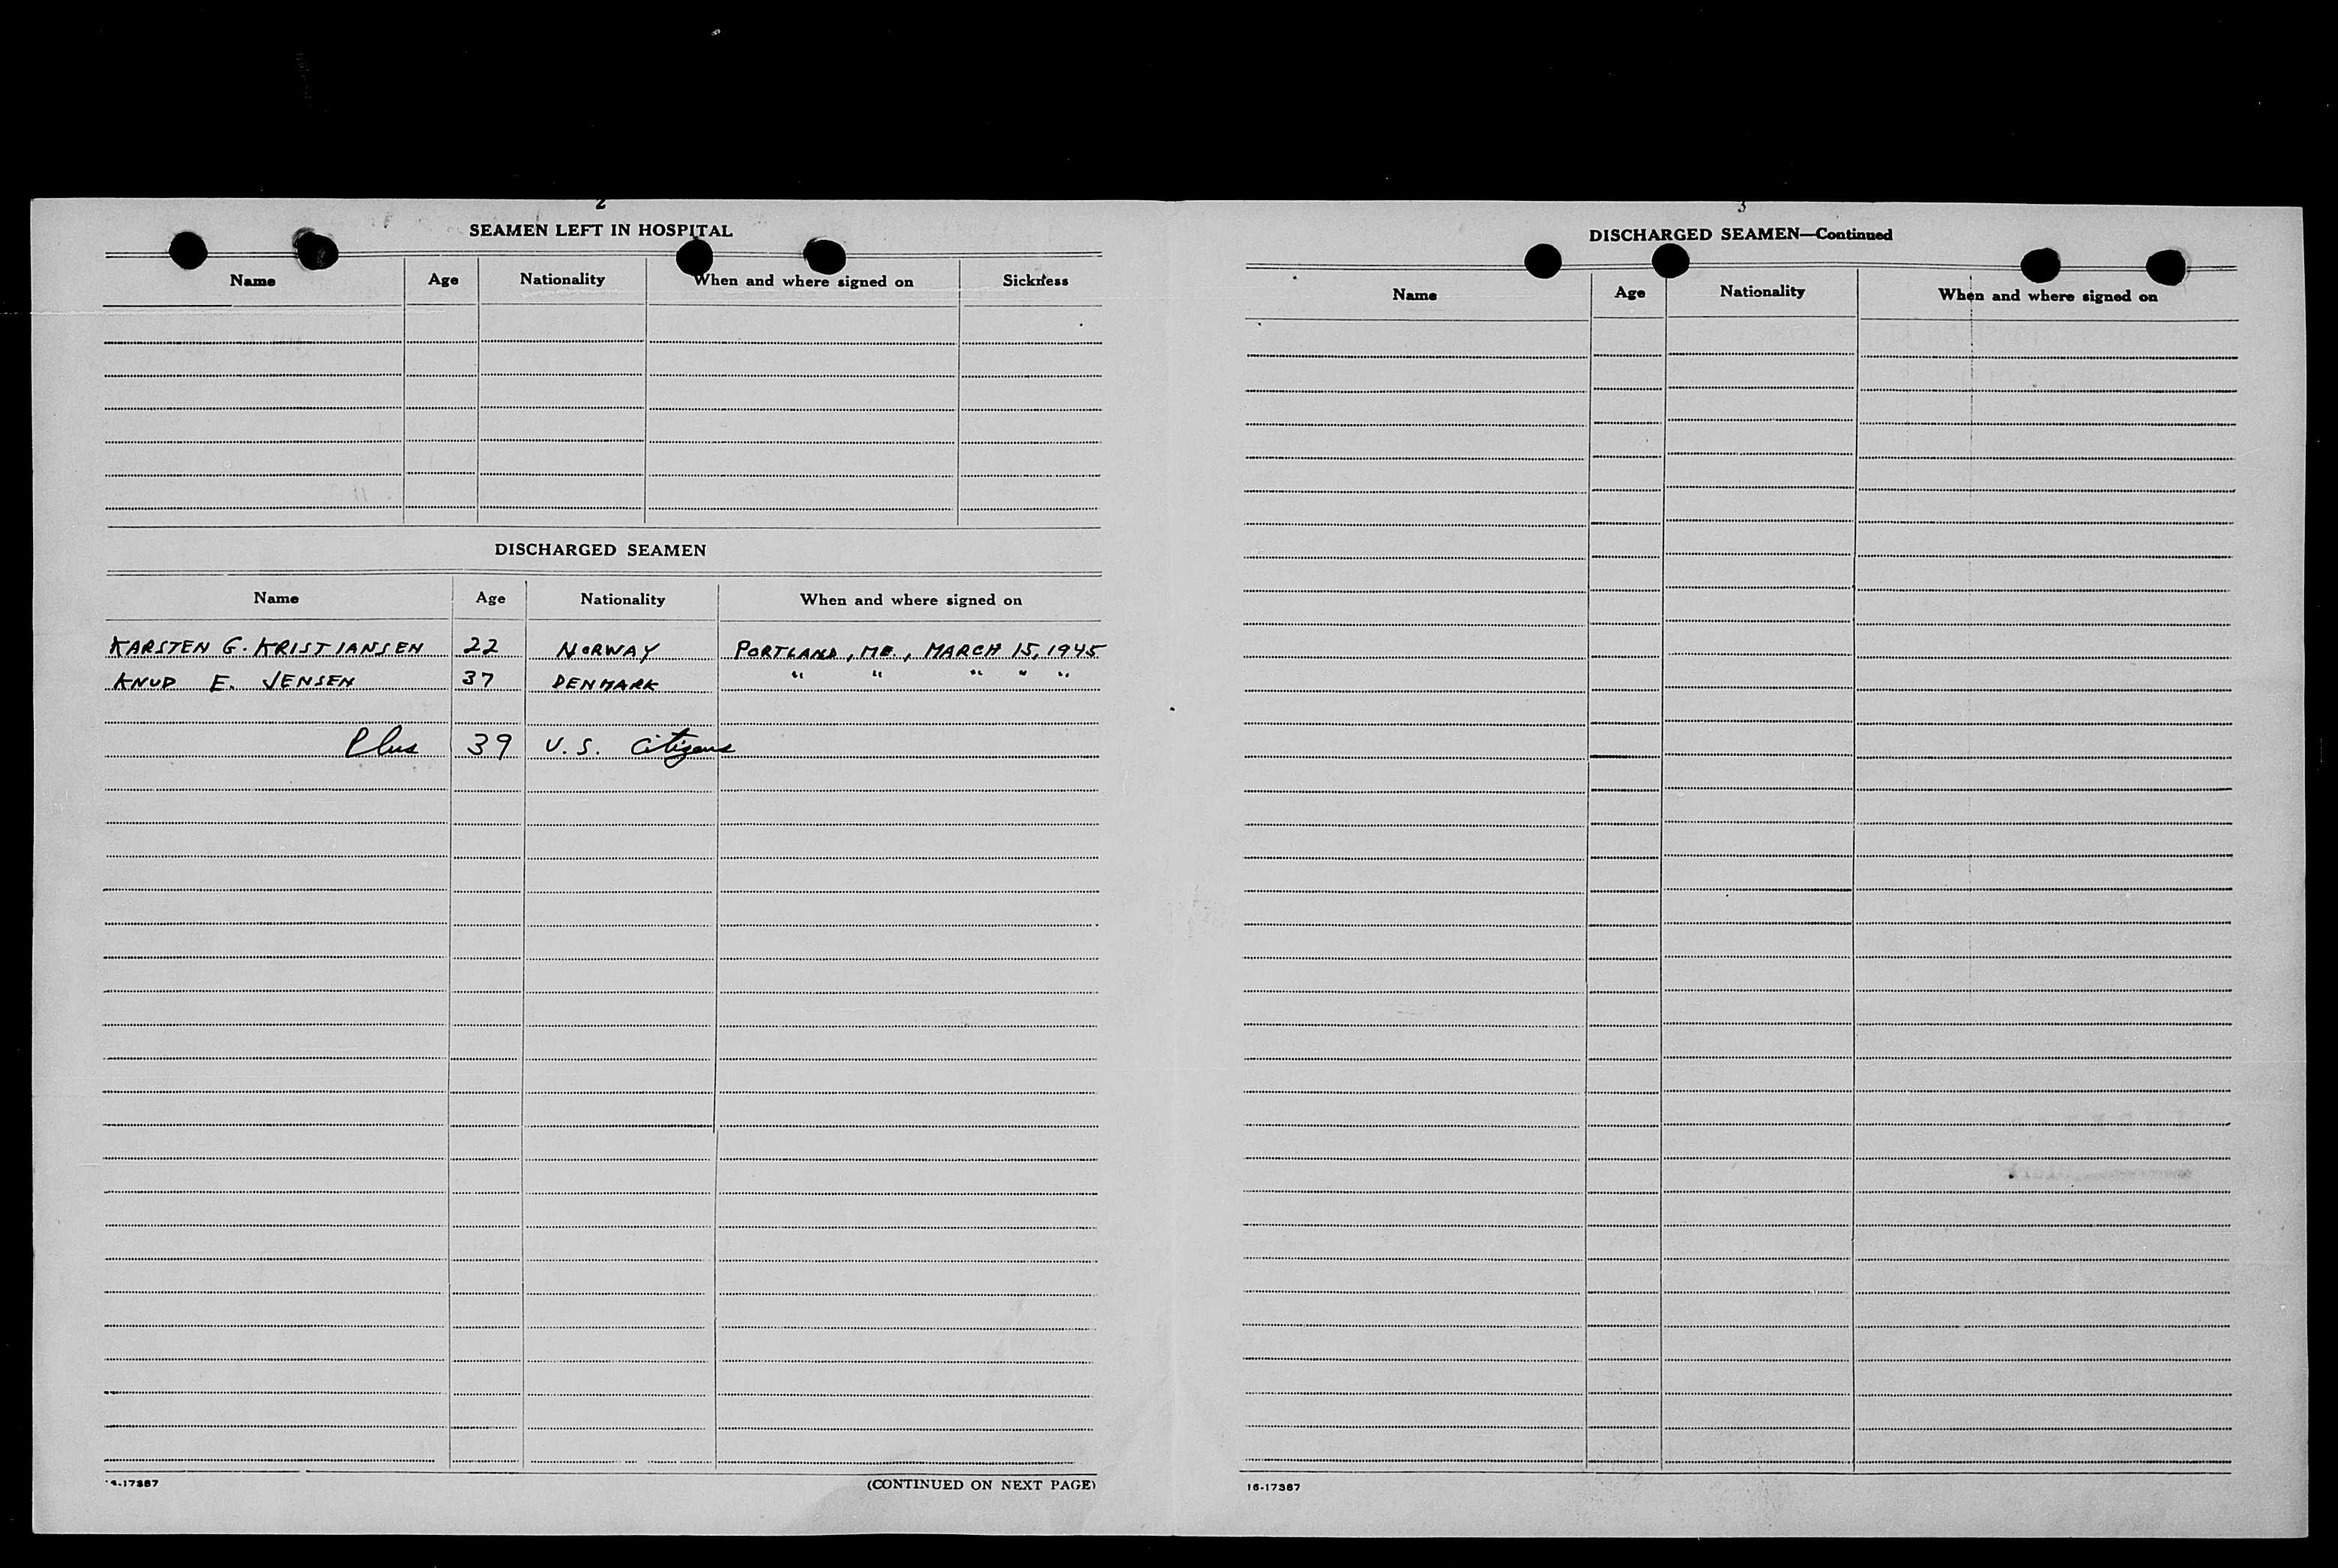 2
SEAMEN LEFT IN HOSPITAL
Name Age Nationality When and where signed on Sickness
DISCHARGED SEAMEN
Name Age Nationality When and where signed on
KARSTEN G. KRISTIANSEN 22 NORWAY PORTLAND, ME., MARCH 15, 1945
KNUD E. JENSEN 37 DENMARK " " " " "
Plus 39 U. S. Citizens
(CONTINUED ON NEXT PAGE)
3
DISCHARGED SEAMEN—Continued
Name Age Nationality When and where signed on
16-17387